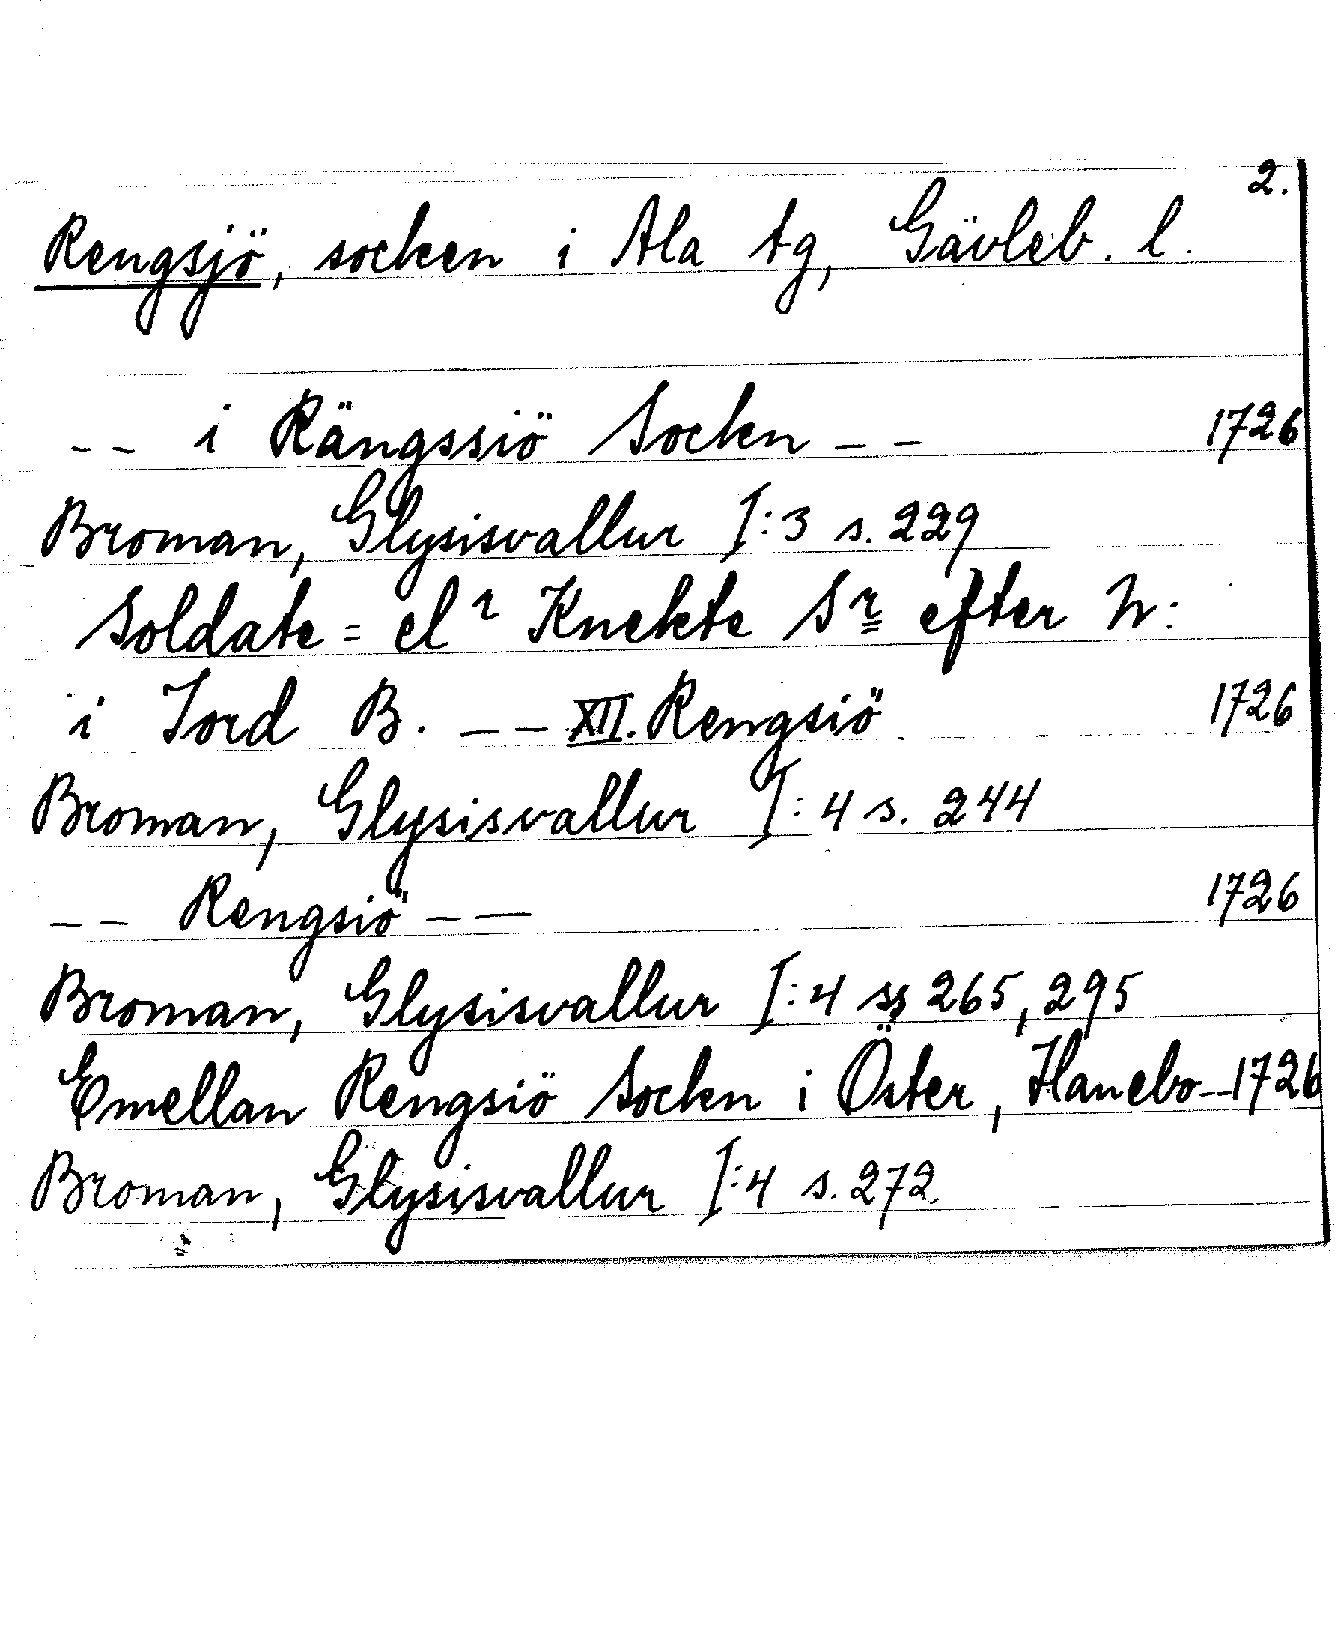 2.
Rengsjö, socken i Ala tg, Gävleb. l.
-- i Rängssiö Sockn -- 1726
Broman, Glysisvallur I:3 s. 229
Soldate= elr Knekte Sr efter N:
i Jord B. -- XII. Rengsiö 1726
Broman, Glysisvallur I:4 s. 244
-- Rengsiö -- 1726
Broman, Glysisvallur I:4 ss 265, 295
Emellan Rengsiö Sockn i Öster, Hanebo -- 1726
Broman, Glysisvallur I:4 s. 272.